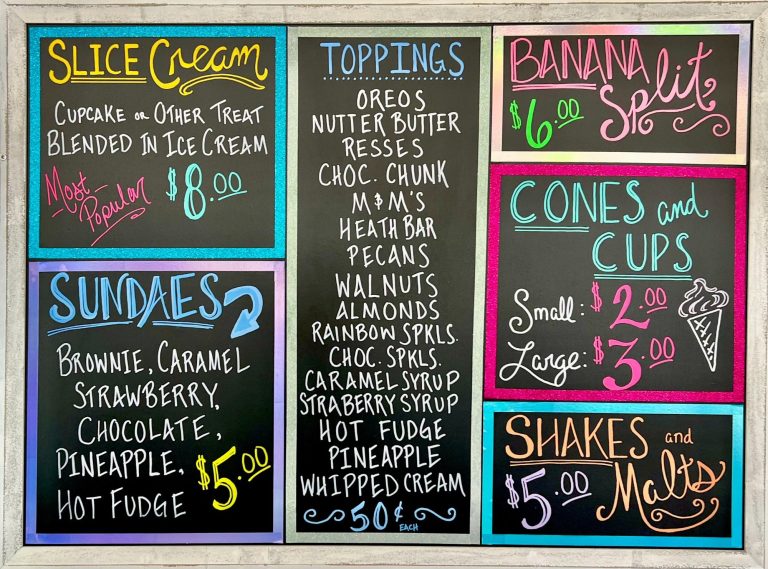 SLICE Cream
CUPCAKE OR OTHER TREAT
BLENDED IN ICE CREAM
Most Popular
$8.00
SUNDAES
BROWNIE, CARAMEL
STRAWBERRY,
CHOCOLATE,
PINEAPPLE,
HOT FUDGE
$5.00
TOPPINGS
OREOS
NUTTER BUTTER
RESSES
CHOC. CHUNK
M&M'S
HEATH BAR
PECANS
WALNUTS
ALMONDS
RAINBOW SPKLS.
CHOC. SPKLS.
CARAMEL SYRUP
STRABERRY SYRUP
HOT FUDGE
PINEAPPLE
WHIPPED CREAM
50¢ EACH
BANANA
Split
$6.00
CONES and
CUPS
Small: $2.00
Large: $3.00
SHAKES and
Malts
$5.00